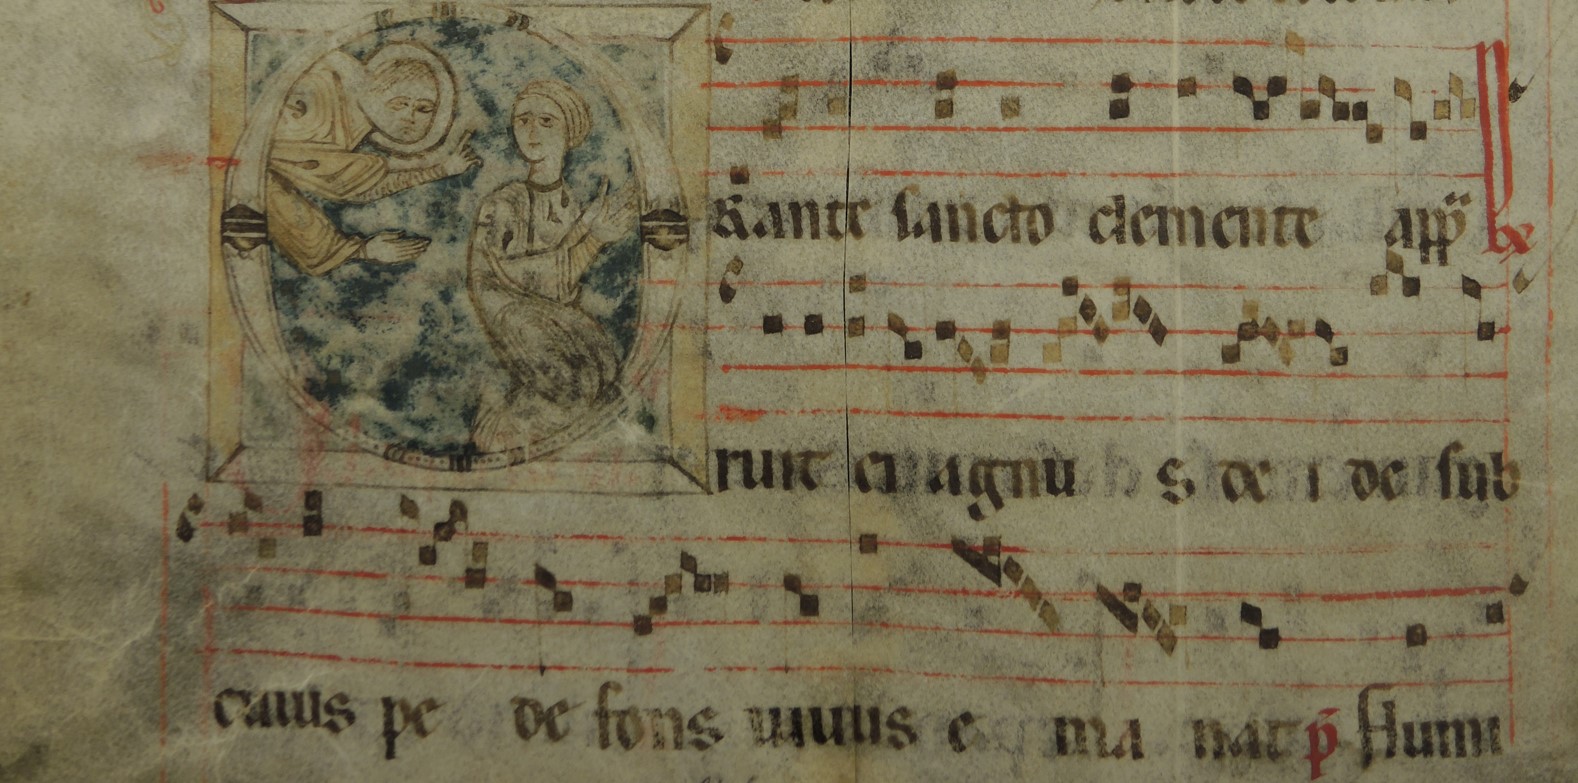 Orante sancto clemente app̄a
ruit ei agnu s de i de sub
cuius pe de fons uiuus e ma nat p̄ flumi